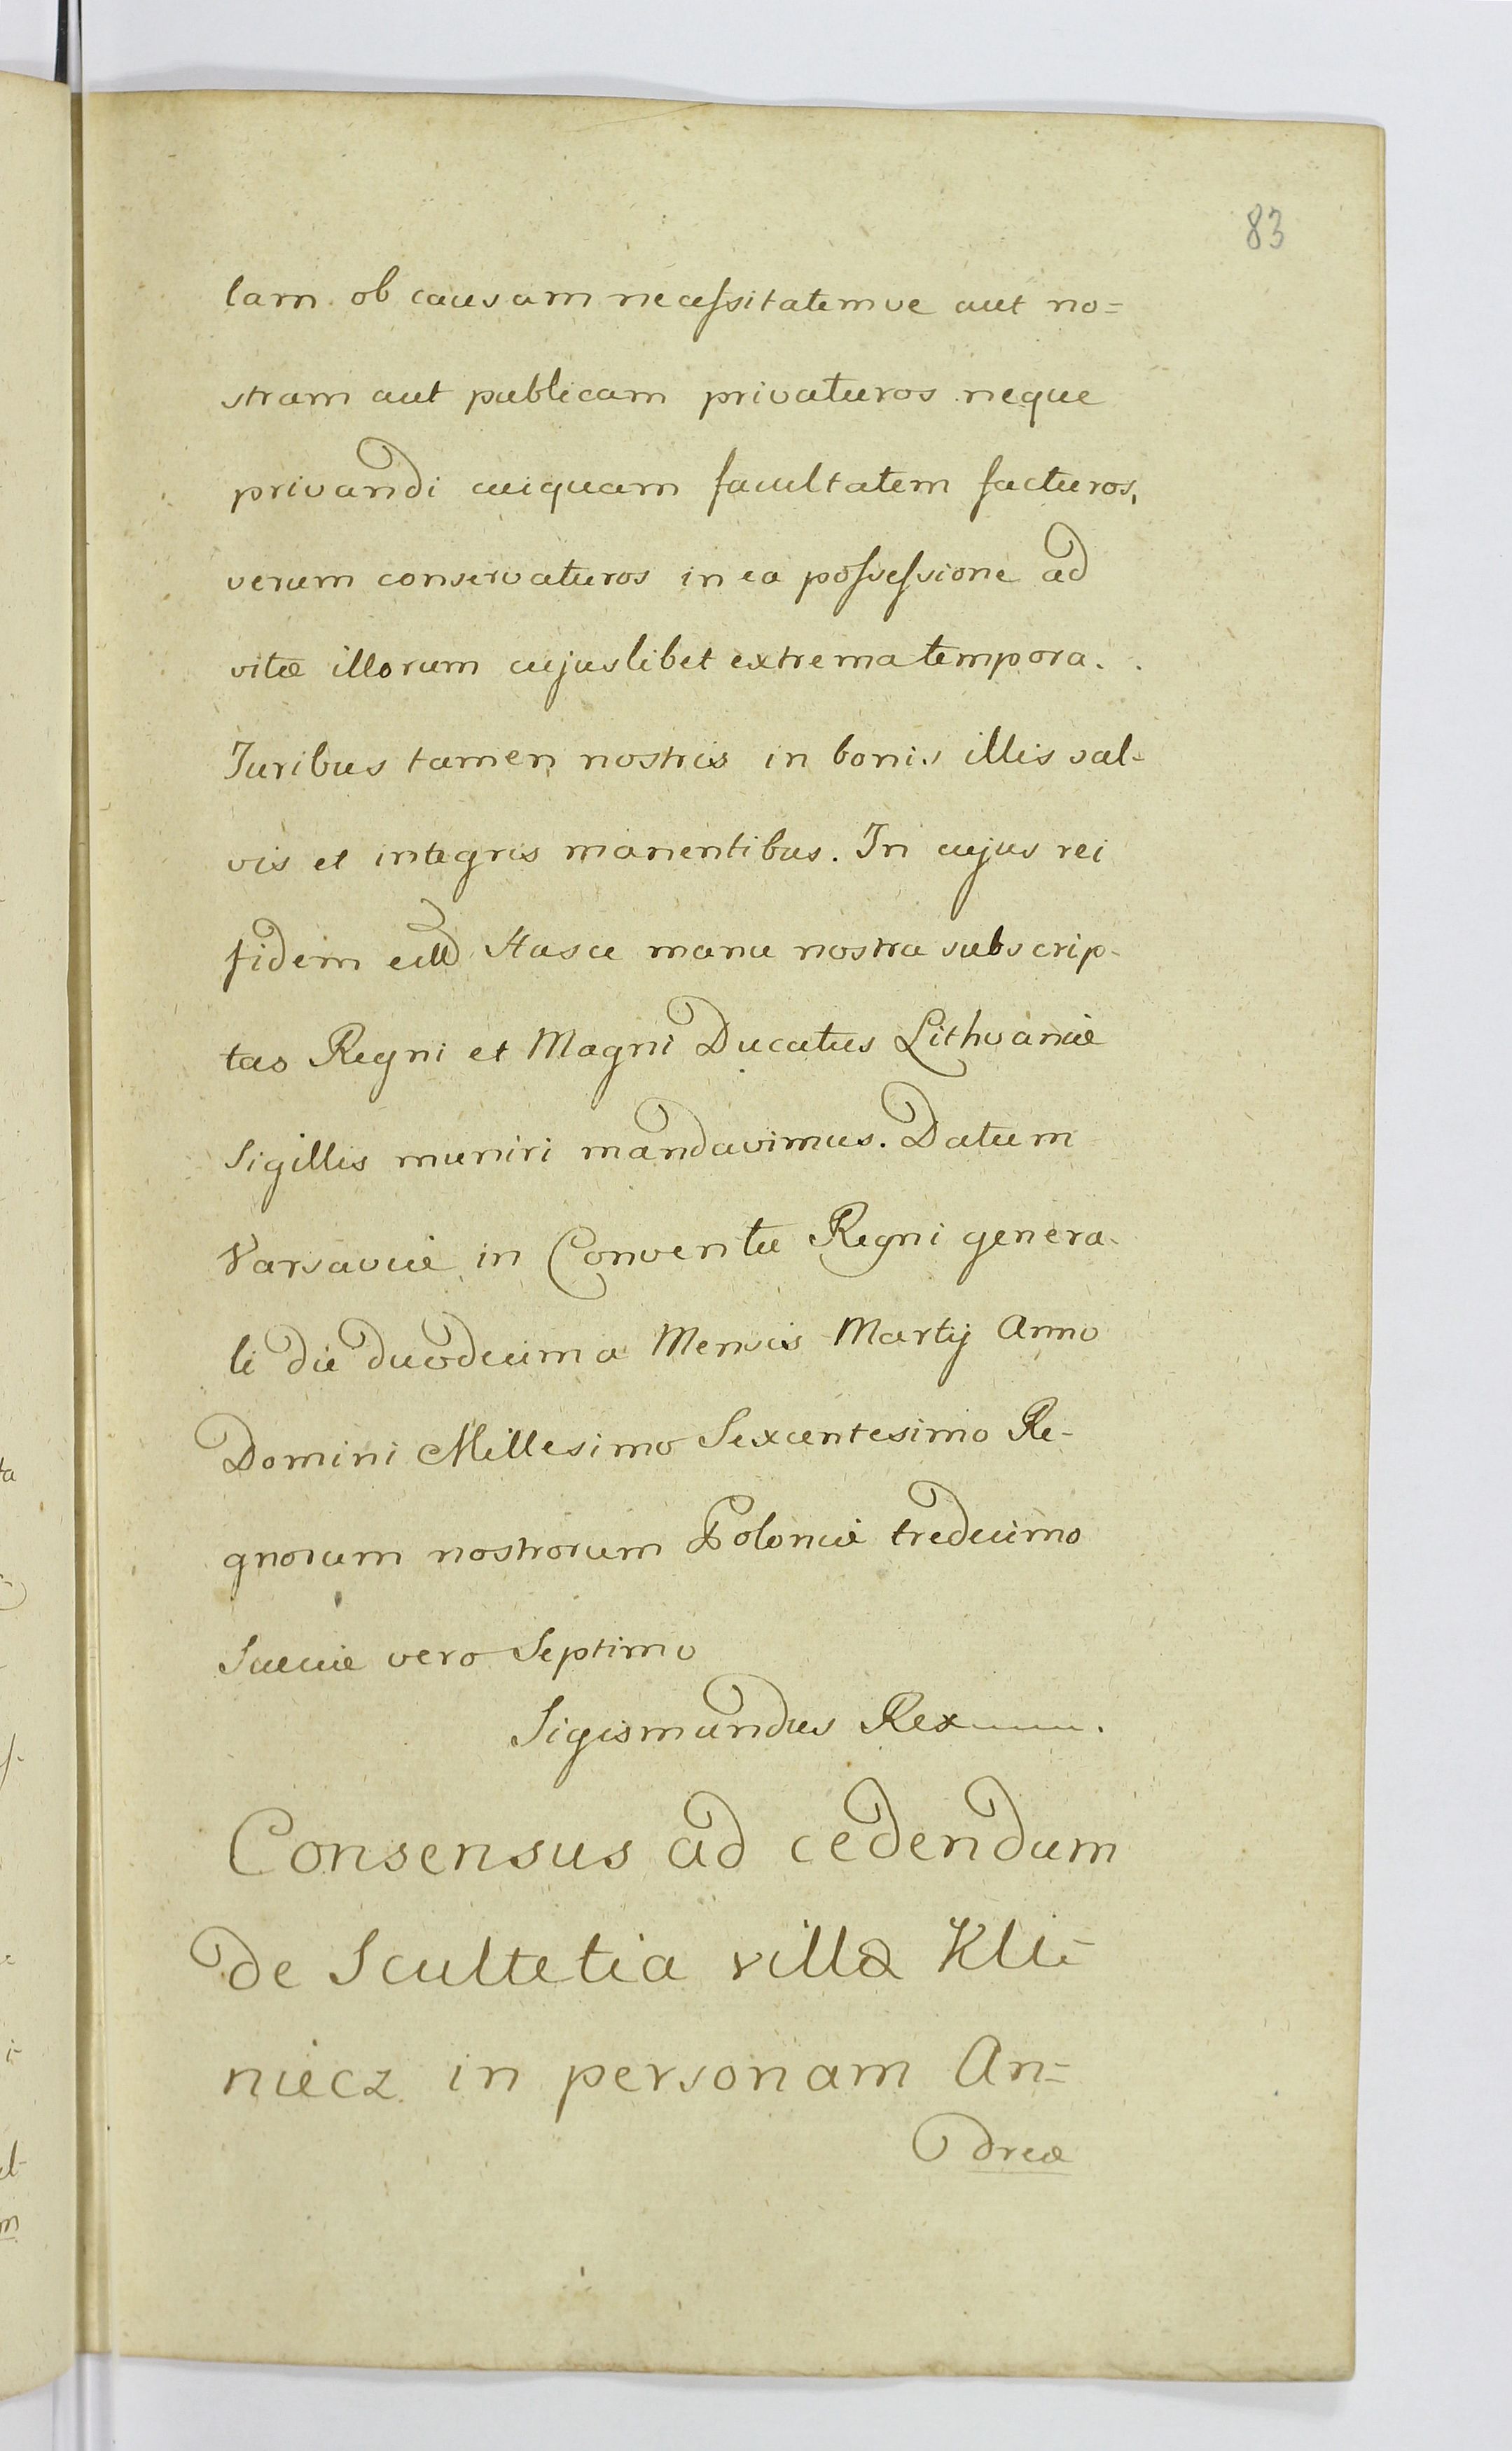 83
lam ob causam necessitatemve aut no=
stram aut publicam privaturos neque
privandi cuiquam facultatem facturos,
verum conservaturos in ea possessione ad
vitæ illorum cujuslibet extrema tempora.
Juribus tamen nostris in bonis illis sal-
vis et integris manentibus. In cujus rei
fidem hasce manu nostra subscrip-
tas Regni et Magni Ducatus Lithvaniæ
Sigillis muniri mandavimus. Datum
Varsaviæ in Conventu Regni genera-
li die duodecima Mensis Martij Anno
Domini Millesimo Sexcentesimo Re-
gnorum nostrorum Poloniæ tredecimo
Sueciæ vero Septimo
Sigismundus Rex
Consensus ad cedendum
de Scultetia villæ Kli-
niecz in personam An=
dreæ